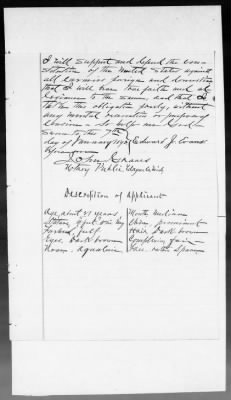 I will support and defend the con-
stitution of the United States against
all enemies foreign and domestic
that I will bear true faith and al-
legiance to the same, and that I
take this obligation freely, without
any mental reservation or purpose of
evasion - so help me God -
Sworn to this 7th
day of January 1921 Edward J. Evans
John
Notary Public
Description of Applicant
Age, about 21 years, Mouth medium
Stature 5 feet Chin, prominent
Forehead, full Hair, dark brown
Eyes dark brown Complexion fair
Nose, aquiline Face,